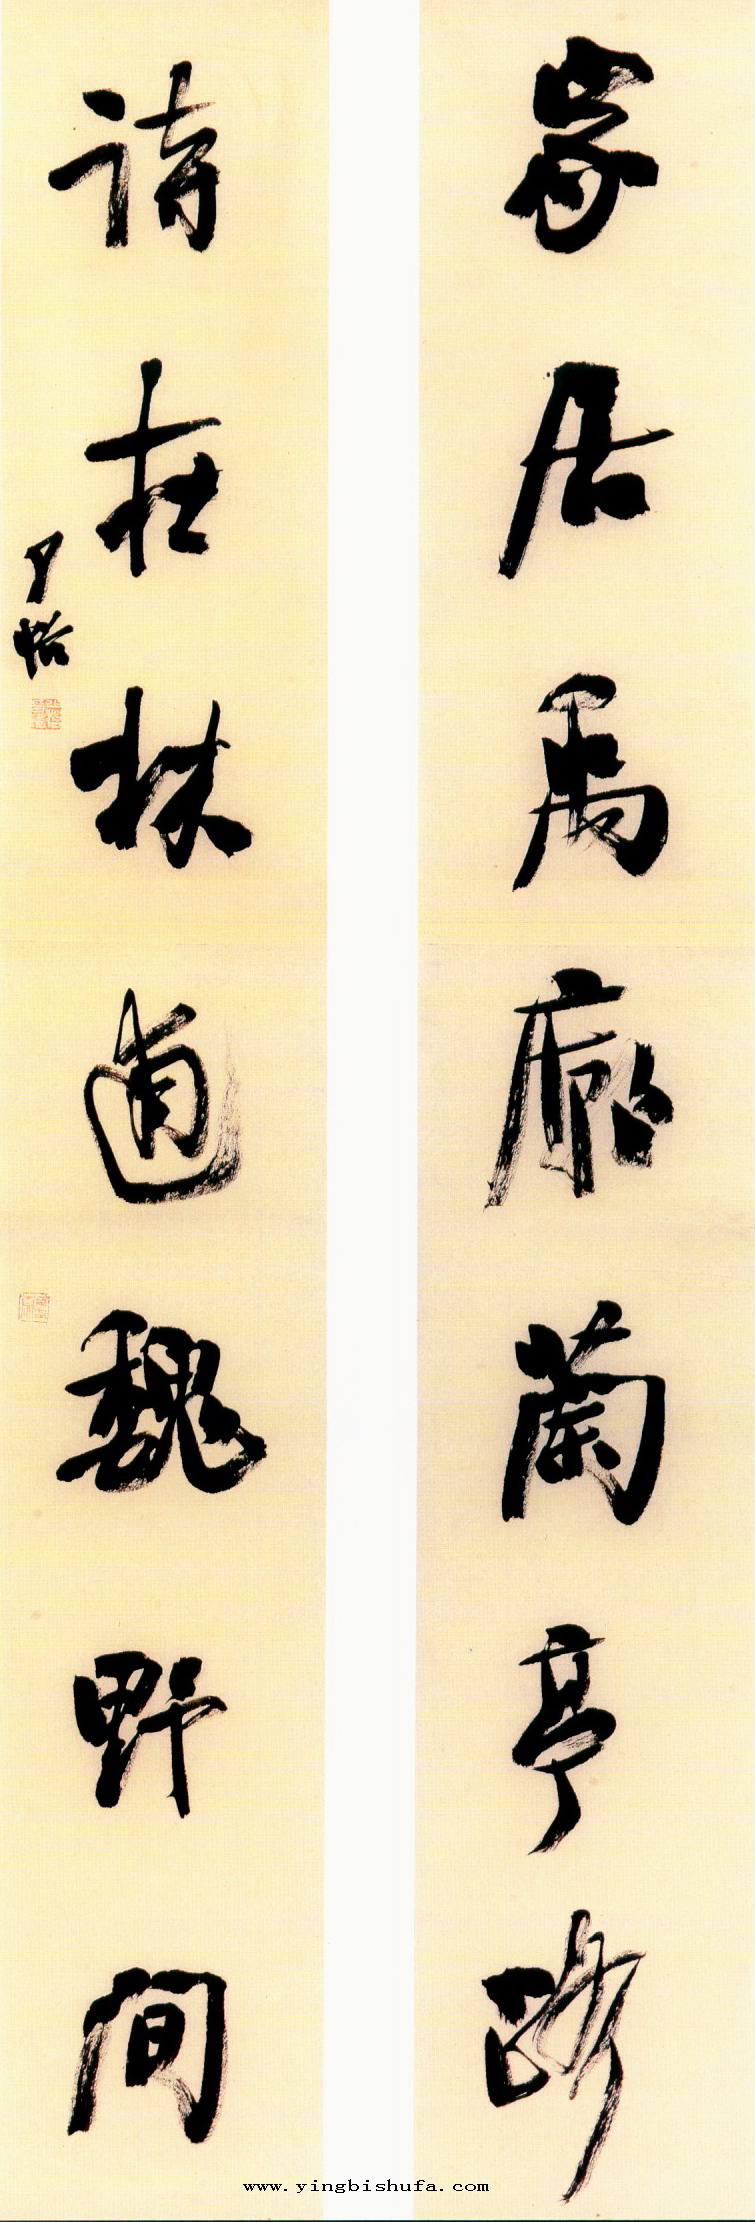 家居禹廟蘭亭路
詩在林逋魏野間
www.yingbishufa.com